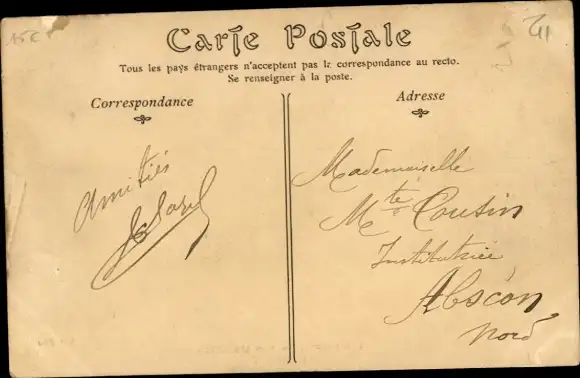 Carte Postale
Tous les pays étrangers n'acceptent pas la correspondance au recto.
Se renseigner à la poste.
Correspondance
Adresse
Amitiés
Mademoiselle
Mte Cousin
Institutrice
Abscon
Nord